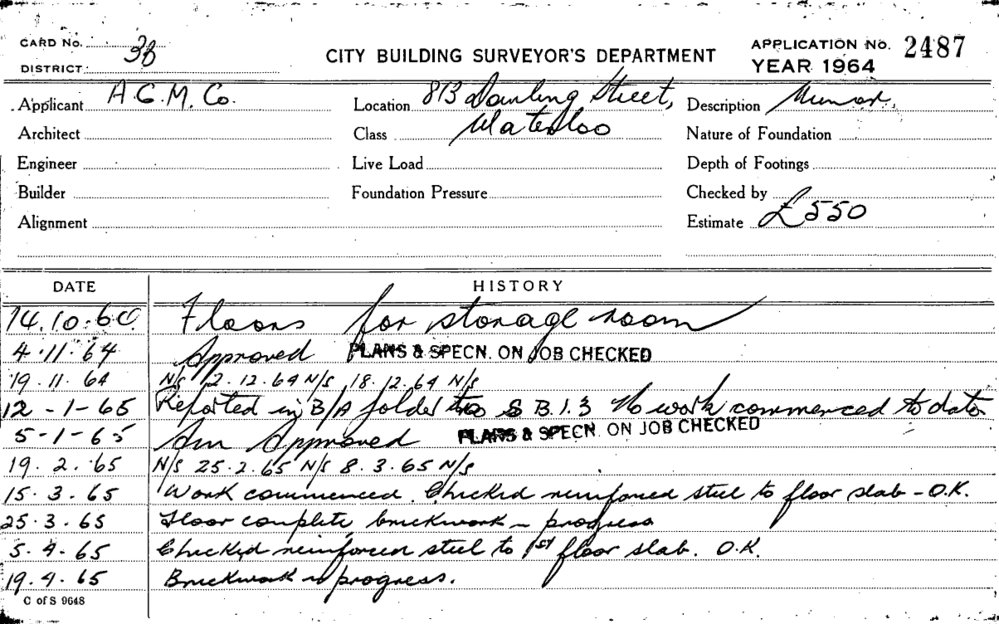 CARD No. 38
DISTRICT
CITY BUILDING SURVEYOR'S DEPARTMENT
APPLICATION No. 2487
YEAR 1964
Applicant A.G.M. Co.
Location 813 Dowling Street,
Description
Architect
Class Waterloo
Nature of Foundation
Engineer
Live Load
Depth of Footings
Builder
Foundation Pressure
Checked by
Alignment
Estimate £550
DATE HISTORY
14.10.64 Floors for storage room
4.11.64 Approved PLANS & SPECN. ON JOB CHECKED
19.11.64 N/S 2.12.64 N/S 18.12.64 N/S
12-1-65 Reported in B/A folder to S.B.I.3 No work commenced to date
5-1-65 Approved PLANS & SPECN. ON JOB CHECKED
19.2.65 N/S 25.2.65 N/S 8.3.65 N/S
15.3.65 Work commenced. Checked reinforced steel to floor slab - O.K.
25.3.65 Floor complete brickwork in progress
5.4.65 Checked reinforced steel to 1st floor slab. O.K.
19.4.65 Brickwork in progress.
C of S 9648